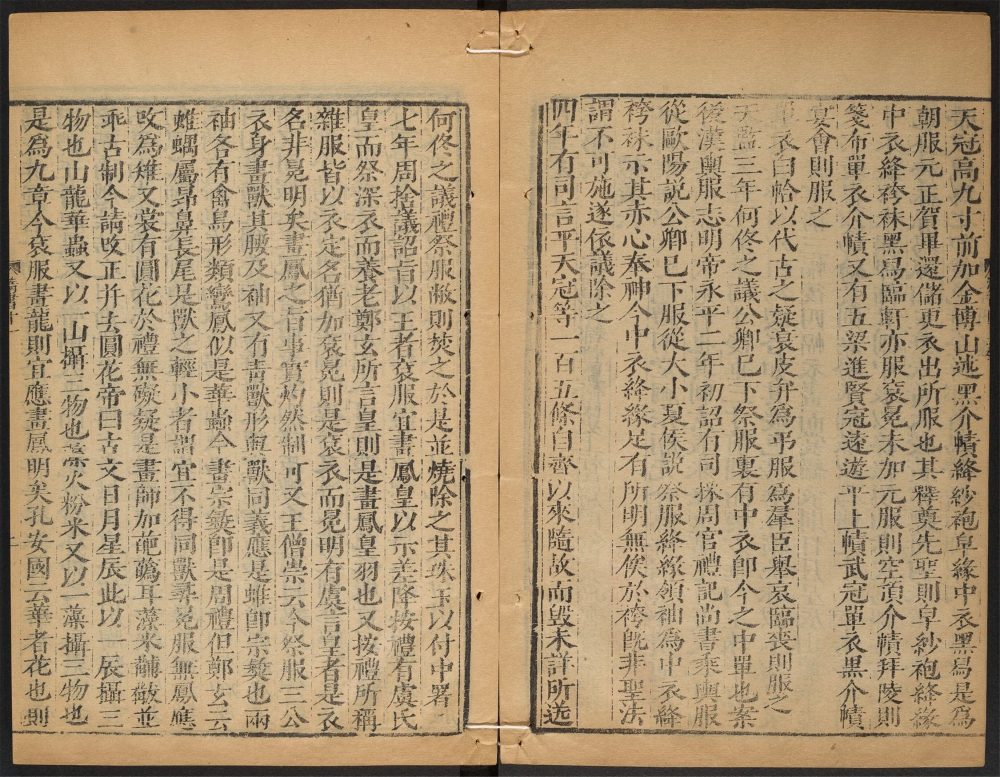 天冠高九寸前加金博山述黑介幘絳紗袍皁緣中衣黑舄是為
朝服元正賀畢還儲更衣出所服也其釋奠先聖則皁紗袍絳緣
中衣絳袴袜黑舄臨軒亦服袞冕未加元服則空頂介幘拜陵則
箋布單衣介幘又有五梁進賢冠遠遊平上幘武冠單衣黑介幘
宴會則服之
單衣白帢以代古之疑衰皮弁為弔服為羣臣舉哀臨喪則服之
天監三年何佟之議公卿巳下祭服裏有中衣卽今之中單也案
後漢輿服志明帝永平二年初詔有司採周官禮記尚書乘輿服
從歐陽說公卿巳下服從大小夏侯說祭服絳緣領袖為中衣絳
袴袜示其赤心奉神今中衣絳緣足有所明無俟於袴旣非聖法
謂不可施遂依議除之
四年有司言平天冠等一百五條自齊以來隨故而毀未詳所送
何佟之議禮祭服敝則焚之於是並燒除之其珠玉以付中署
七年周捨議詔旨以王者袞服宜畫鳳皇以示差降按禮有虞氏
皇而祭深衣而養老鄭玄所言皇則是畫鳳皇羽也又按禮所稱
雜服皆以衣定名猶加袞冕則是袞衣而冕明有虞言皇者是衣
名非冕明矣畫鳳之旨事實灼然制可又王僧崇云今祭服三公
衣身畫獸其腰及袖又有青獸形與獸同義應是蜼卽宗彝也兩
袖各有禽鳥形類鸞鳳似是華蟲今畫宗彝卽是周禮但鄭玄云
蜼蠝屬昂鼻長尾是獸之輕小者謂宜不得同獸尋冕服無鳳應
攺為雉又裳有圓花於禮無礙疑是畫師加葩蘤耳藻米黼黻並
乖古制今請攺正并去圓花帝曰古文日月星辰此以一辰攝三
物也山龍華蟲又以一山攝三物也藻火粉米又以一藻攝三物也
是為九章今袞服畫龍則宜應畫鳳明矣孔安國云華者花也則